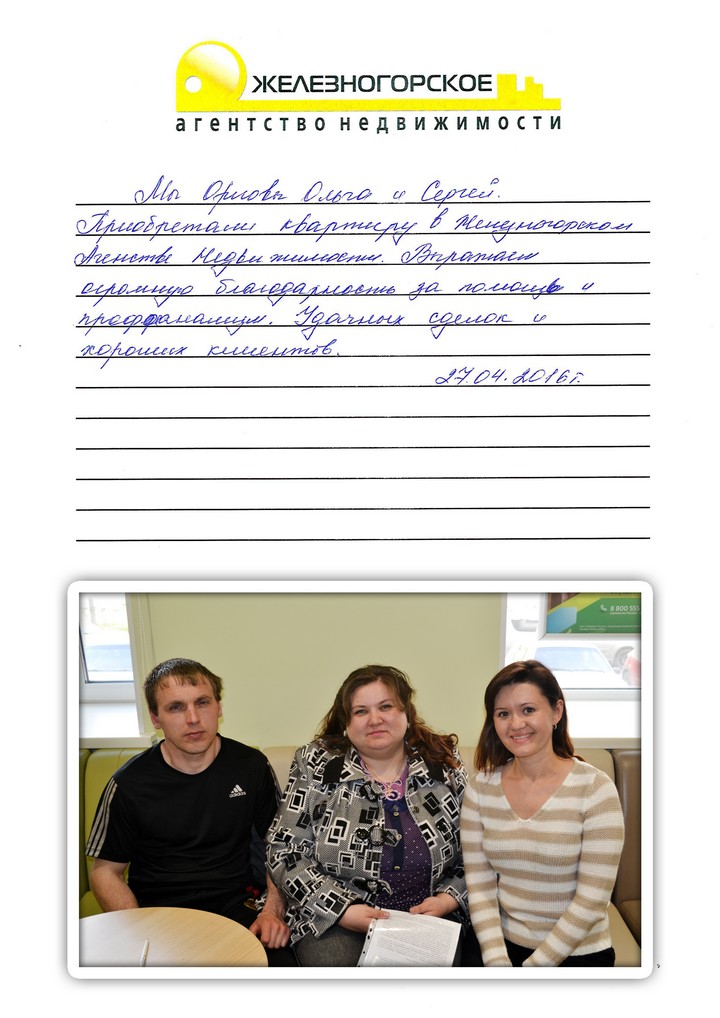 ЖЕЛЕЗНОГОРСКОЕ
агентство недвижимости
Мы Орловы Ольга и Сергей.
Приобретали квартиру в Женузногорском
Агенстве Недвижимости. Выражаем
огромную благодарность за помощь и
проффанализм. Удачных сделок и
хороших клиентов.
27.04.2016г.
8 800 555
adidas